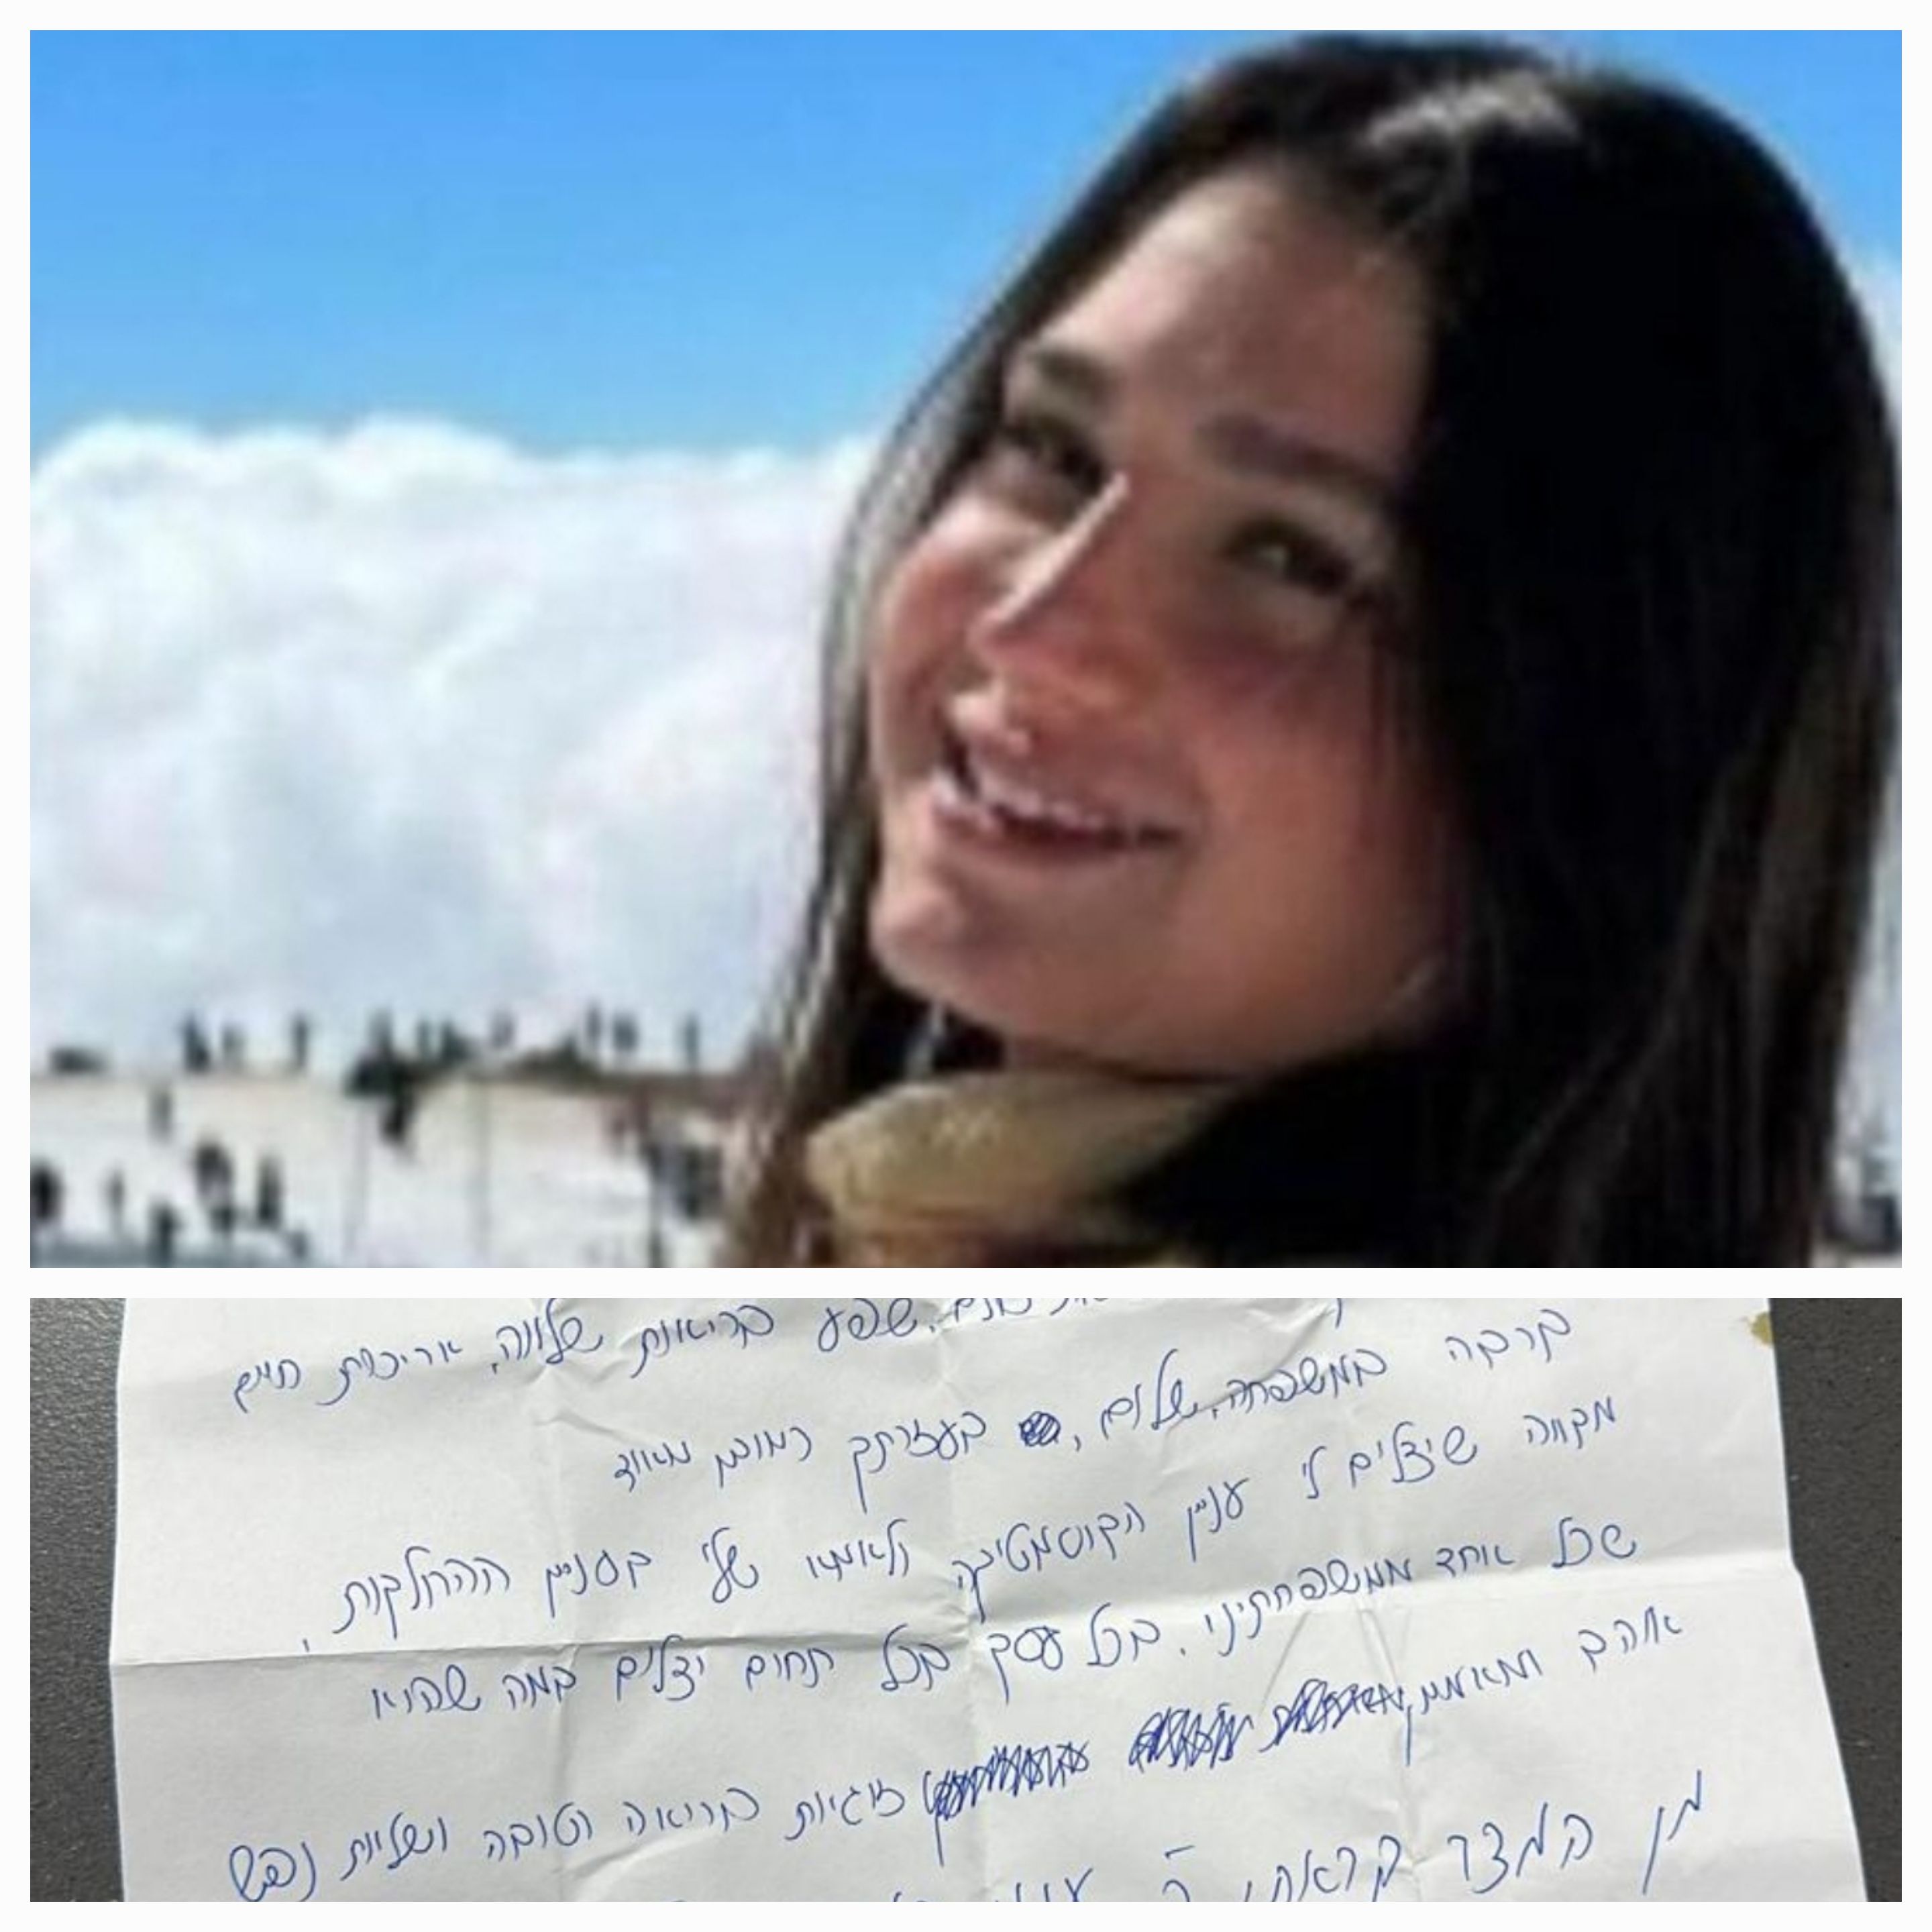 שפע בריאות שלווה, אריכות חיים
קרבה במשפחה, שלום, בעזרתך כמובן מאוד
מקווה שיצלים לי עניין הקוסמטיקה ולאמא שלי בעניין ההחלקות,
שכל אחד ממשפחתינו. בכל עסק בכל תחום יצלים במה שהוא
אוהב ומאמין, זוגיות בריאה וטובה ושלוות נפש
מן המצר קראתי